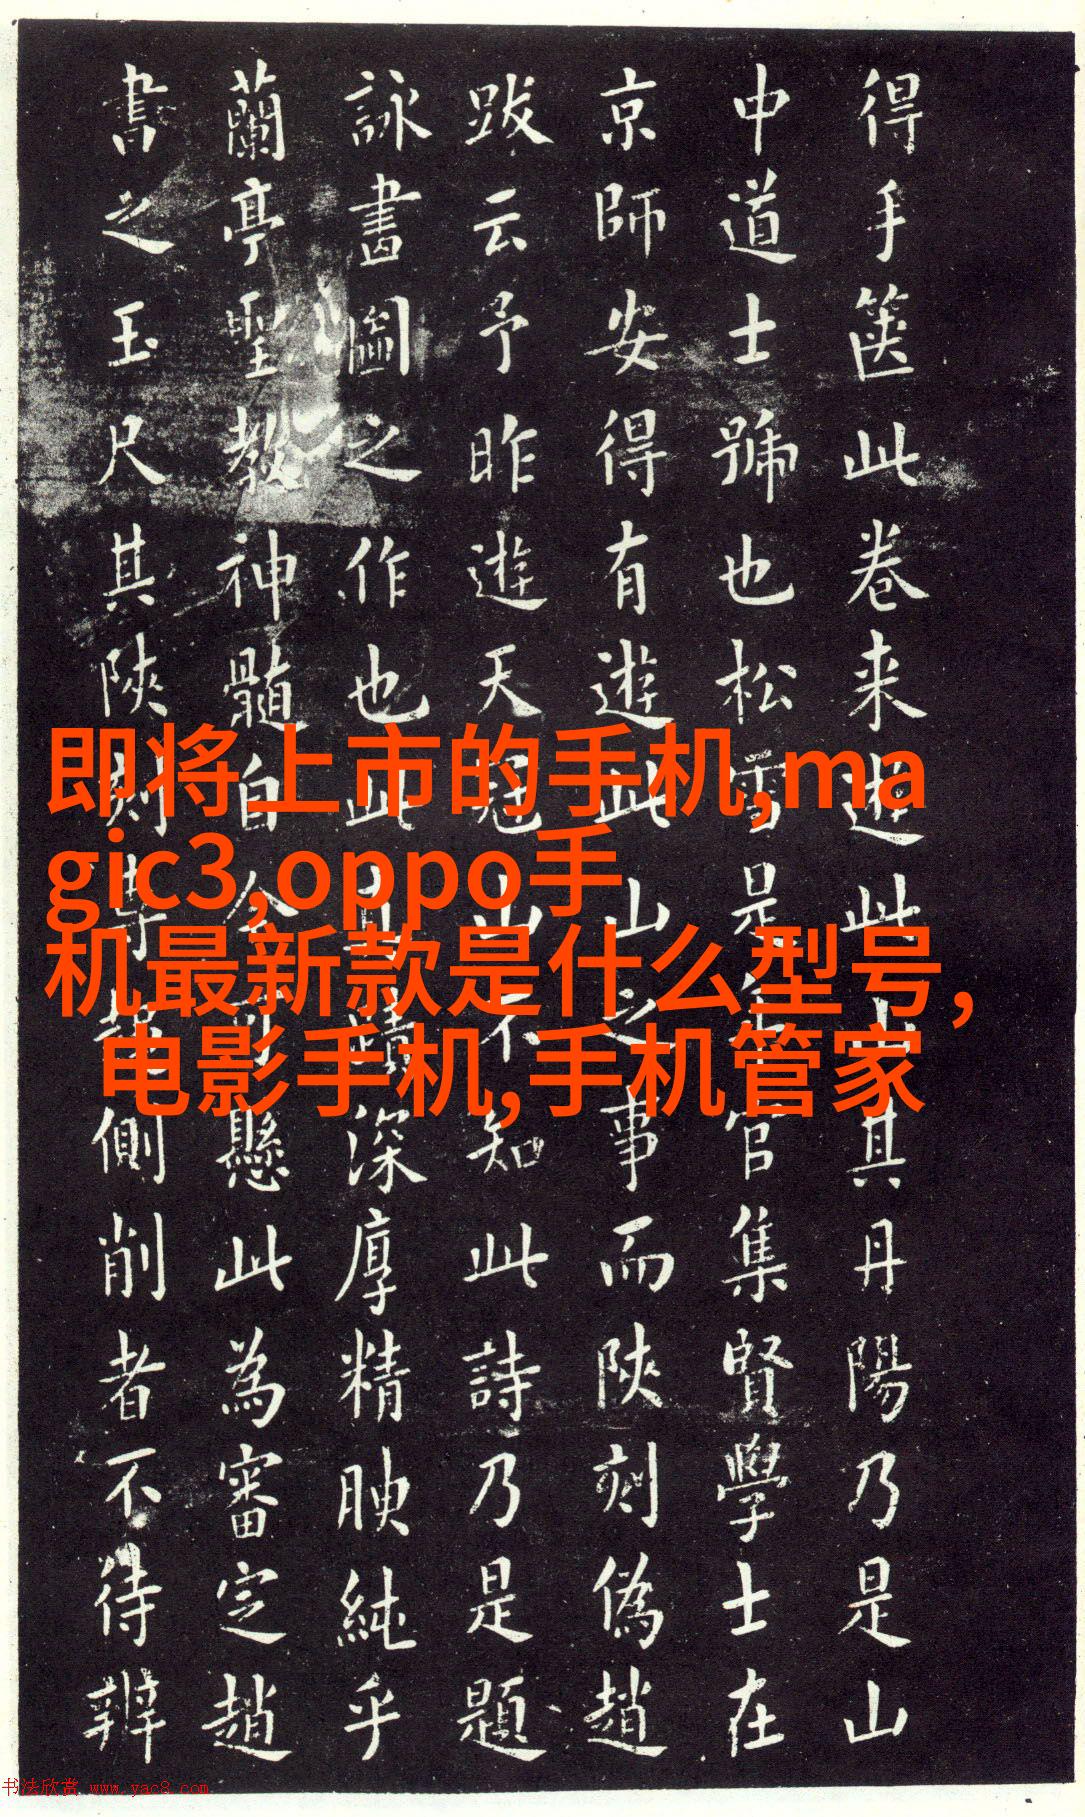 得手箧此卷来遊此其丹陽乃是山
中道士號也松雪是官集賢學士在
京師安得有遊此山之事而陕刻偽趙
跋云予昨遊天冠山不知此詩乃是題
詠畫圖之作也此蹟深厚精腴純乎
蘭亭聖教神髓自今可懸此為審定趙
書之玉尺其陕刻專側削者不待辨
即将上市的手机,ma
gic3,oppo手
机最新款是什么型号，
电影手机,手机管家
书法欣赏 www.yac8.com